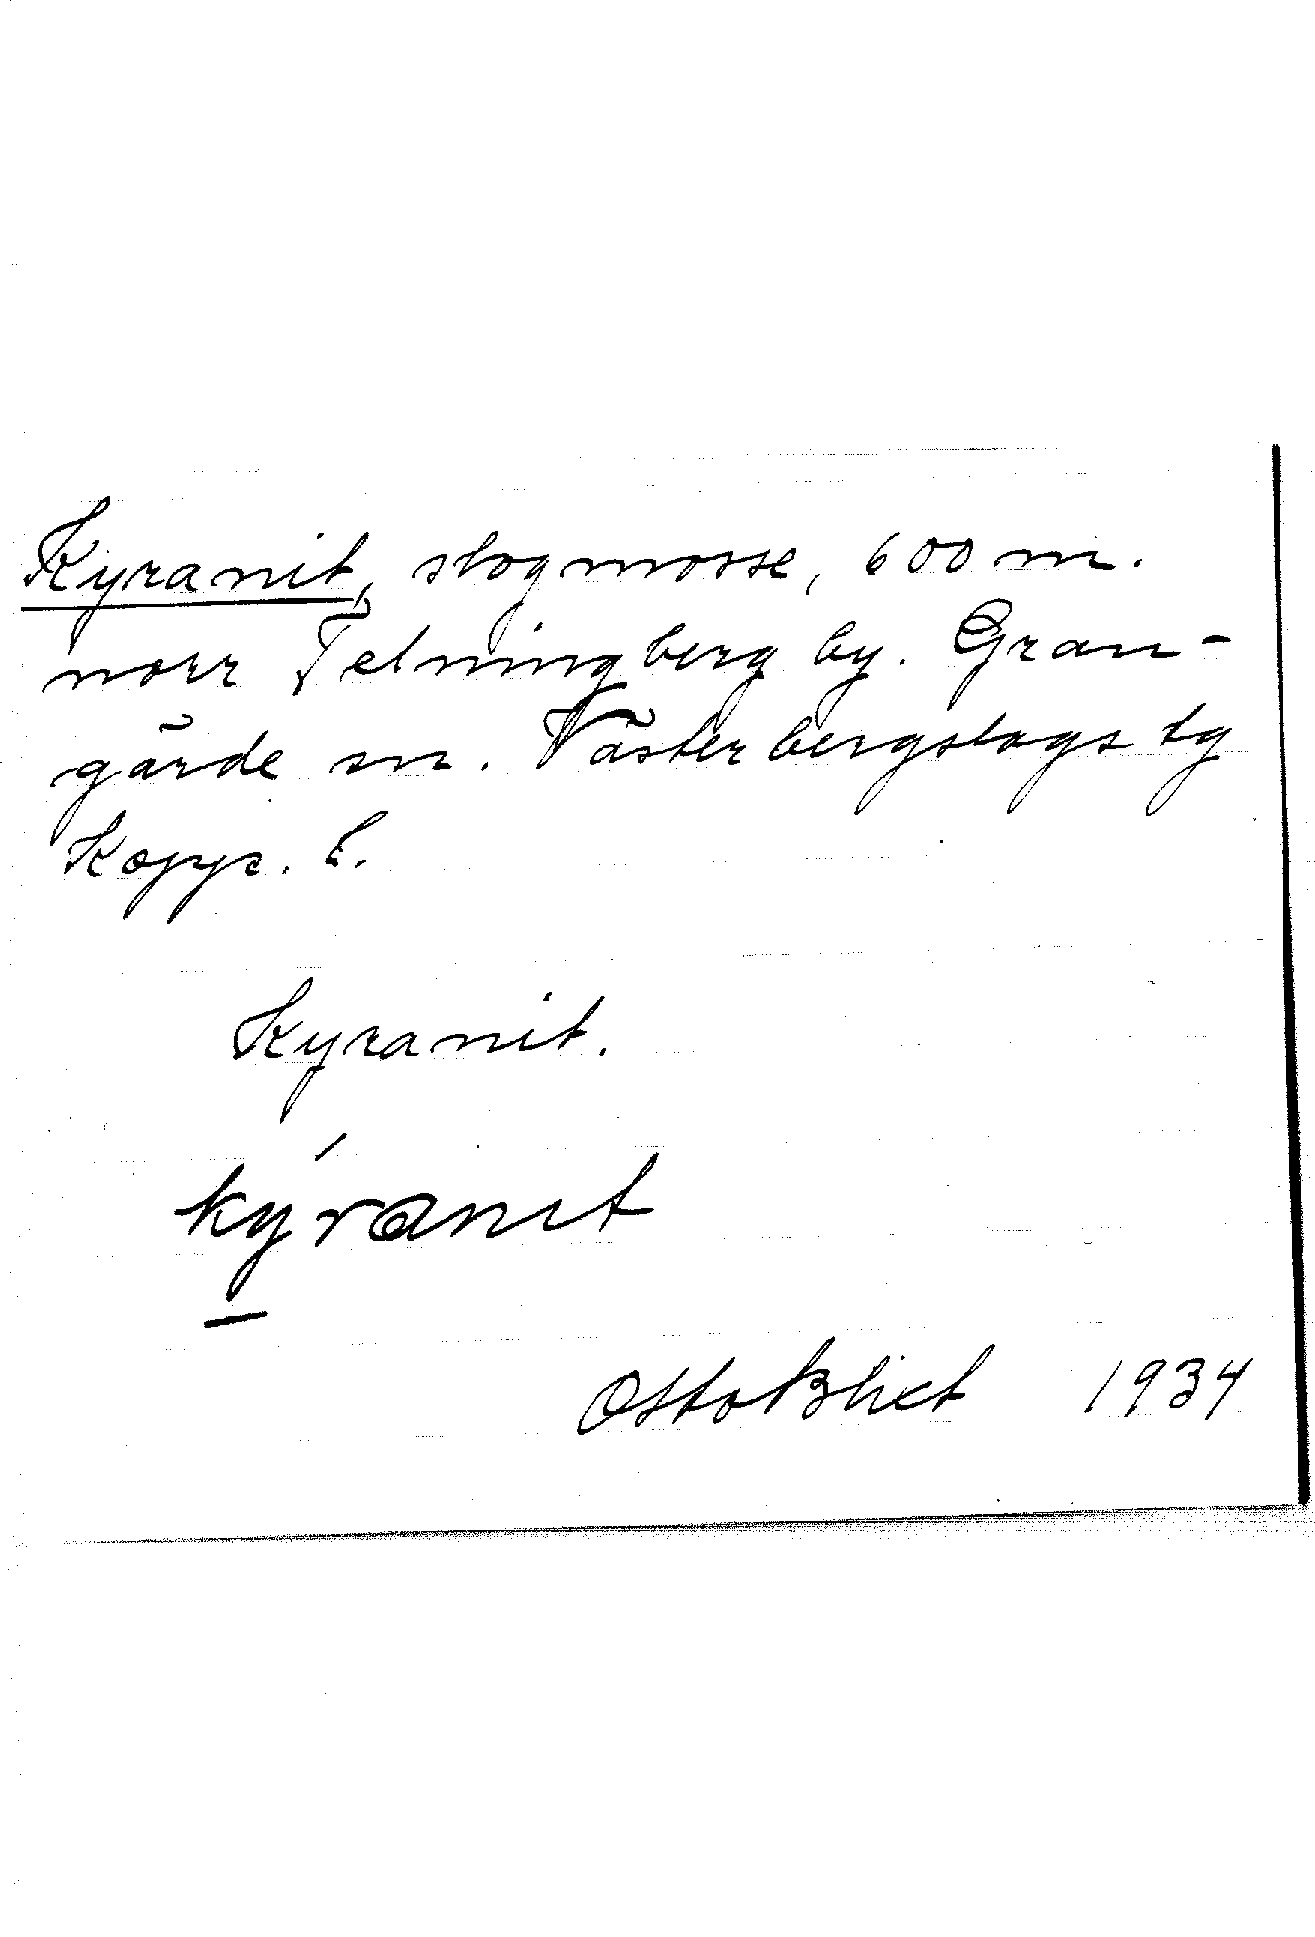 Kyranit, slogmosse, 600 m.
norr Telningberg by. Gran-
gärde sn. Västerbergslags tg
Kopp. l.
Kyranit.
kýranit
Otto Blixt 1934